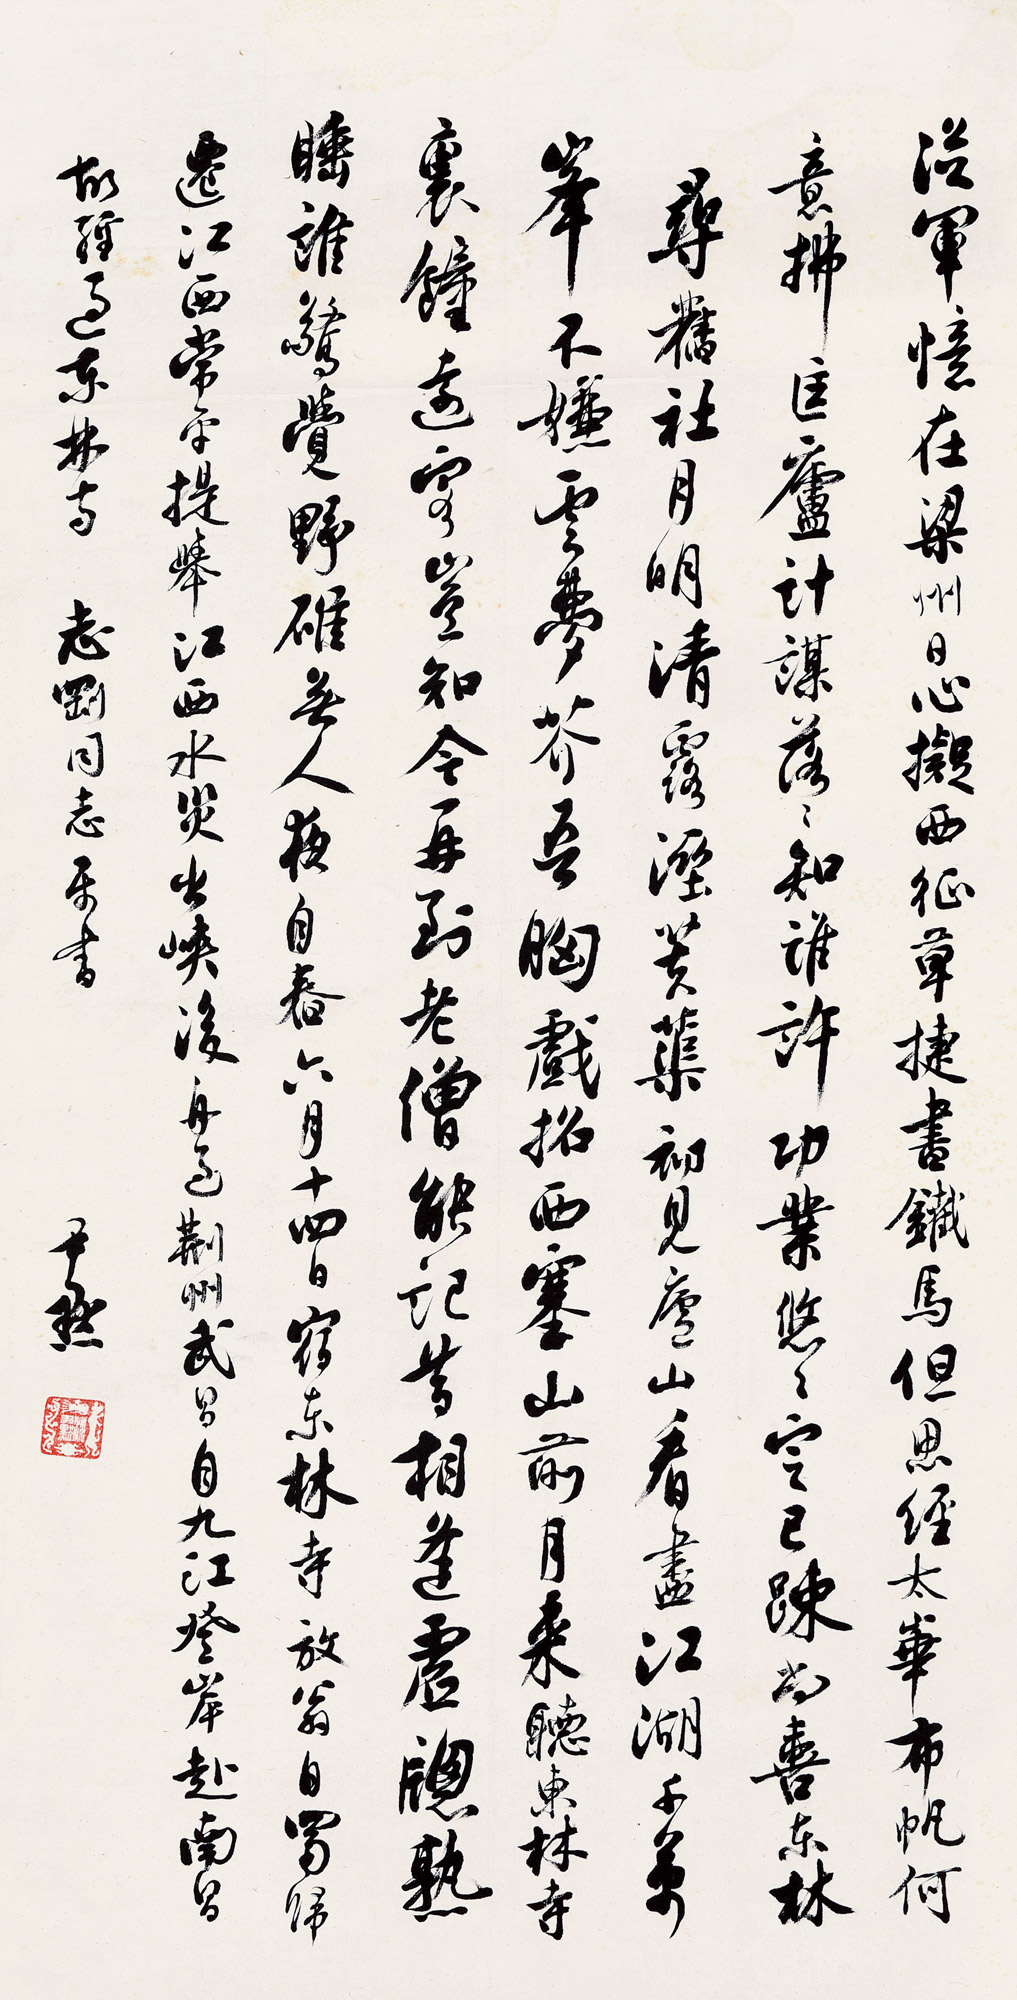 從軍憶在梁州日心擬西征草捷書鐵馬但思經太華布帆何
意拂匡廬計謀落〻知誰許功業悠〻定已疎尚喜东林
尋舊社月明清露溼芙蕖初見廬山看盡江湖千萬
峯不嫌雲夢芥吾胸戲招西塞山前月来聽東林寺
裏鐘遠客豈知今再到老僧能記昔相逢虛牕熟
睡誰驚覺野碓無人夜自舂六月十四日宿东林寺放翁自蜀歸
遷江西常平提舉江西水災出峽後舟过荆州武昌自九江登岸赴南昌
故經过东林寺 志剛同志属书
尹默